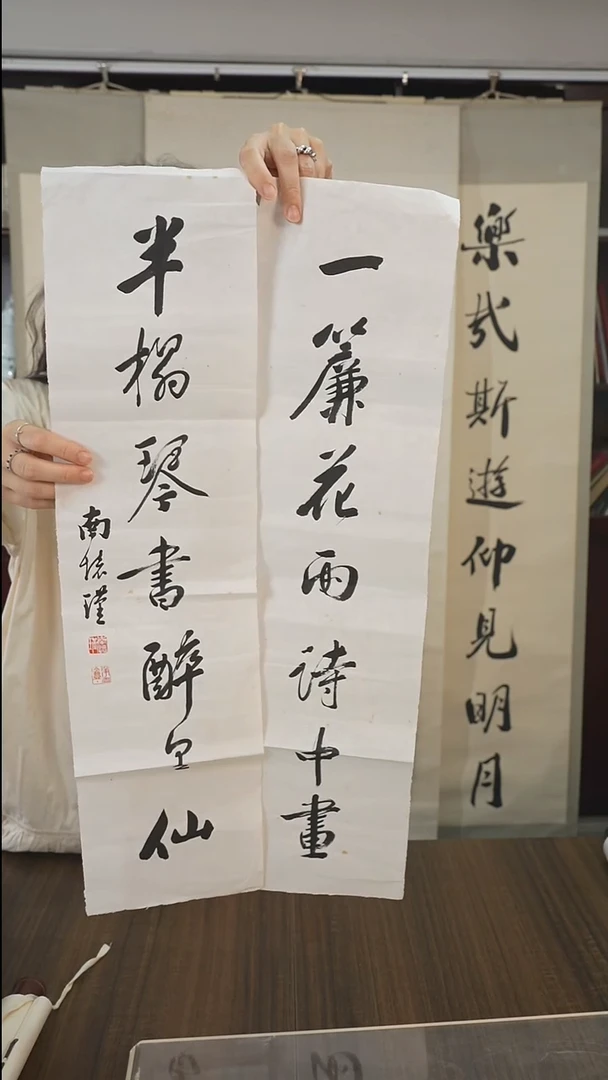 樂哉斯遊仰見明月
一簾花雨詩中畫
半榻琴書醉里仙
南懷瑾